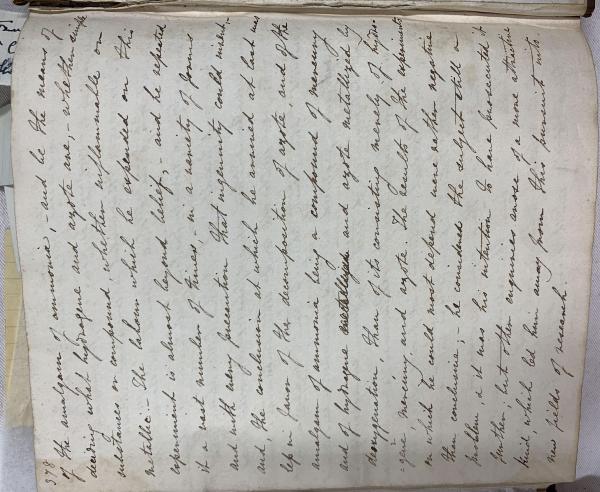 378
of the amalgam of ammonia, - and be the means of
deciding what hydrogene and azote are, - whether simple
substances or compound, whether inflammable or
metallic. - The labour which he expended on this
experiment is almost beyond belief; - and he repeated
it a vast number of times, - in a variety of forms
and with every precaution that ingenuity could invent. -
and, the conclusion at which he arrived at last was
less in favor of the decomposition of azote, and of the
amalgam of ammonia being a compound of mercury
and of hydrogene and azote metallized by
deoxygenation, than of its consisting merely of hydro-
-gene mercury and azote. The results of the experiments
on which he could most depend were rather negative
than conclusive; - he considered the subject still a
problem, & it was his intention to have prosecuted it
further, but other enquiries arose of a more attractive
kind, which led him away from this pursuit into
new fields of research.